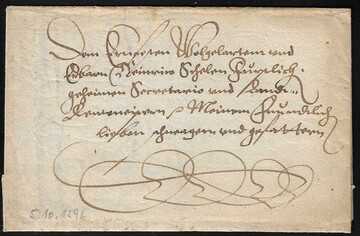 Dem Ernvesten Wolgelartem und
Erbarn Heinrich Schelen Furstlich
geheimen Secretario und Landt
Rentmeistern Meinem freundtlich
lieben schwagern und gefattern
5.10.1596